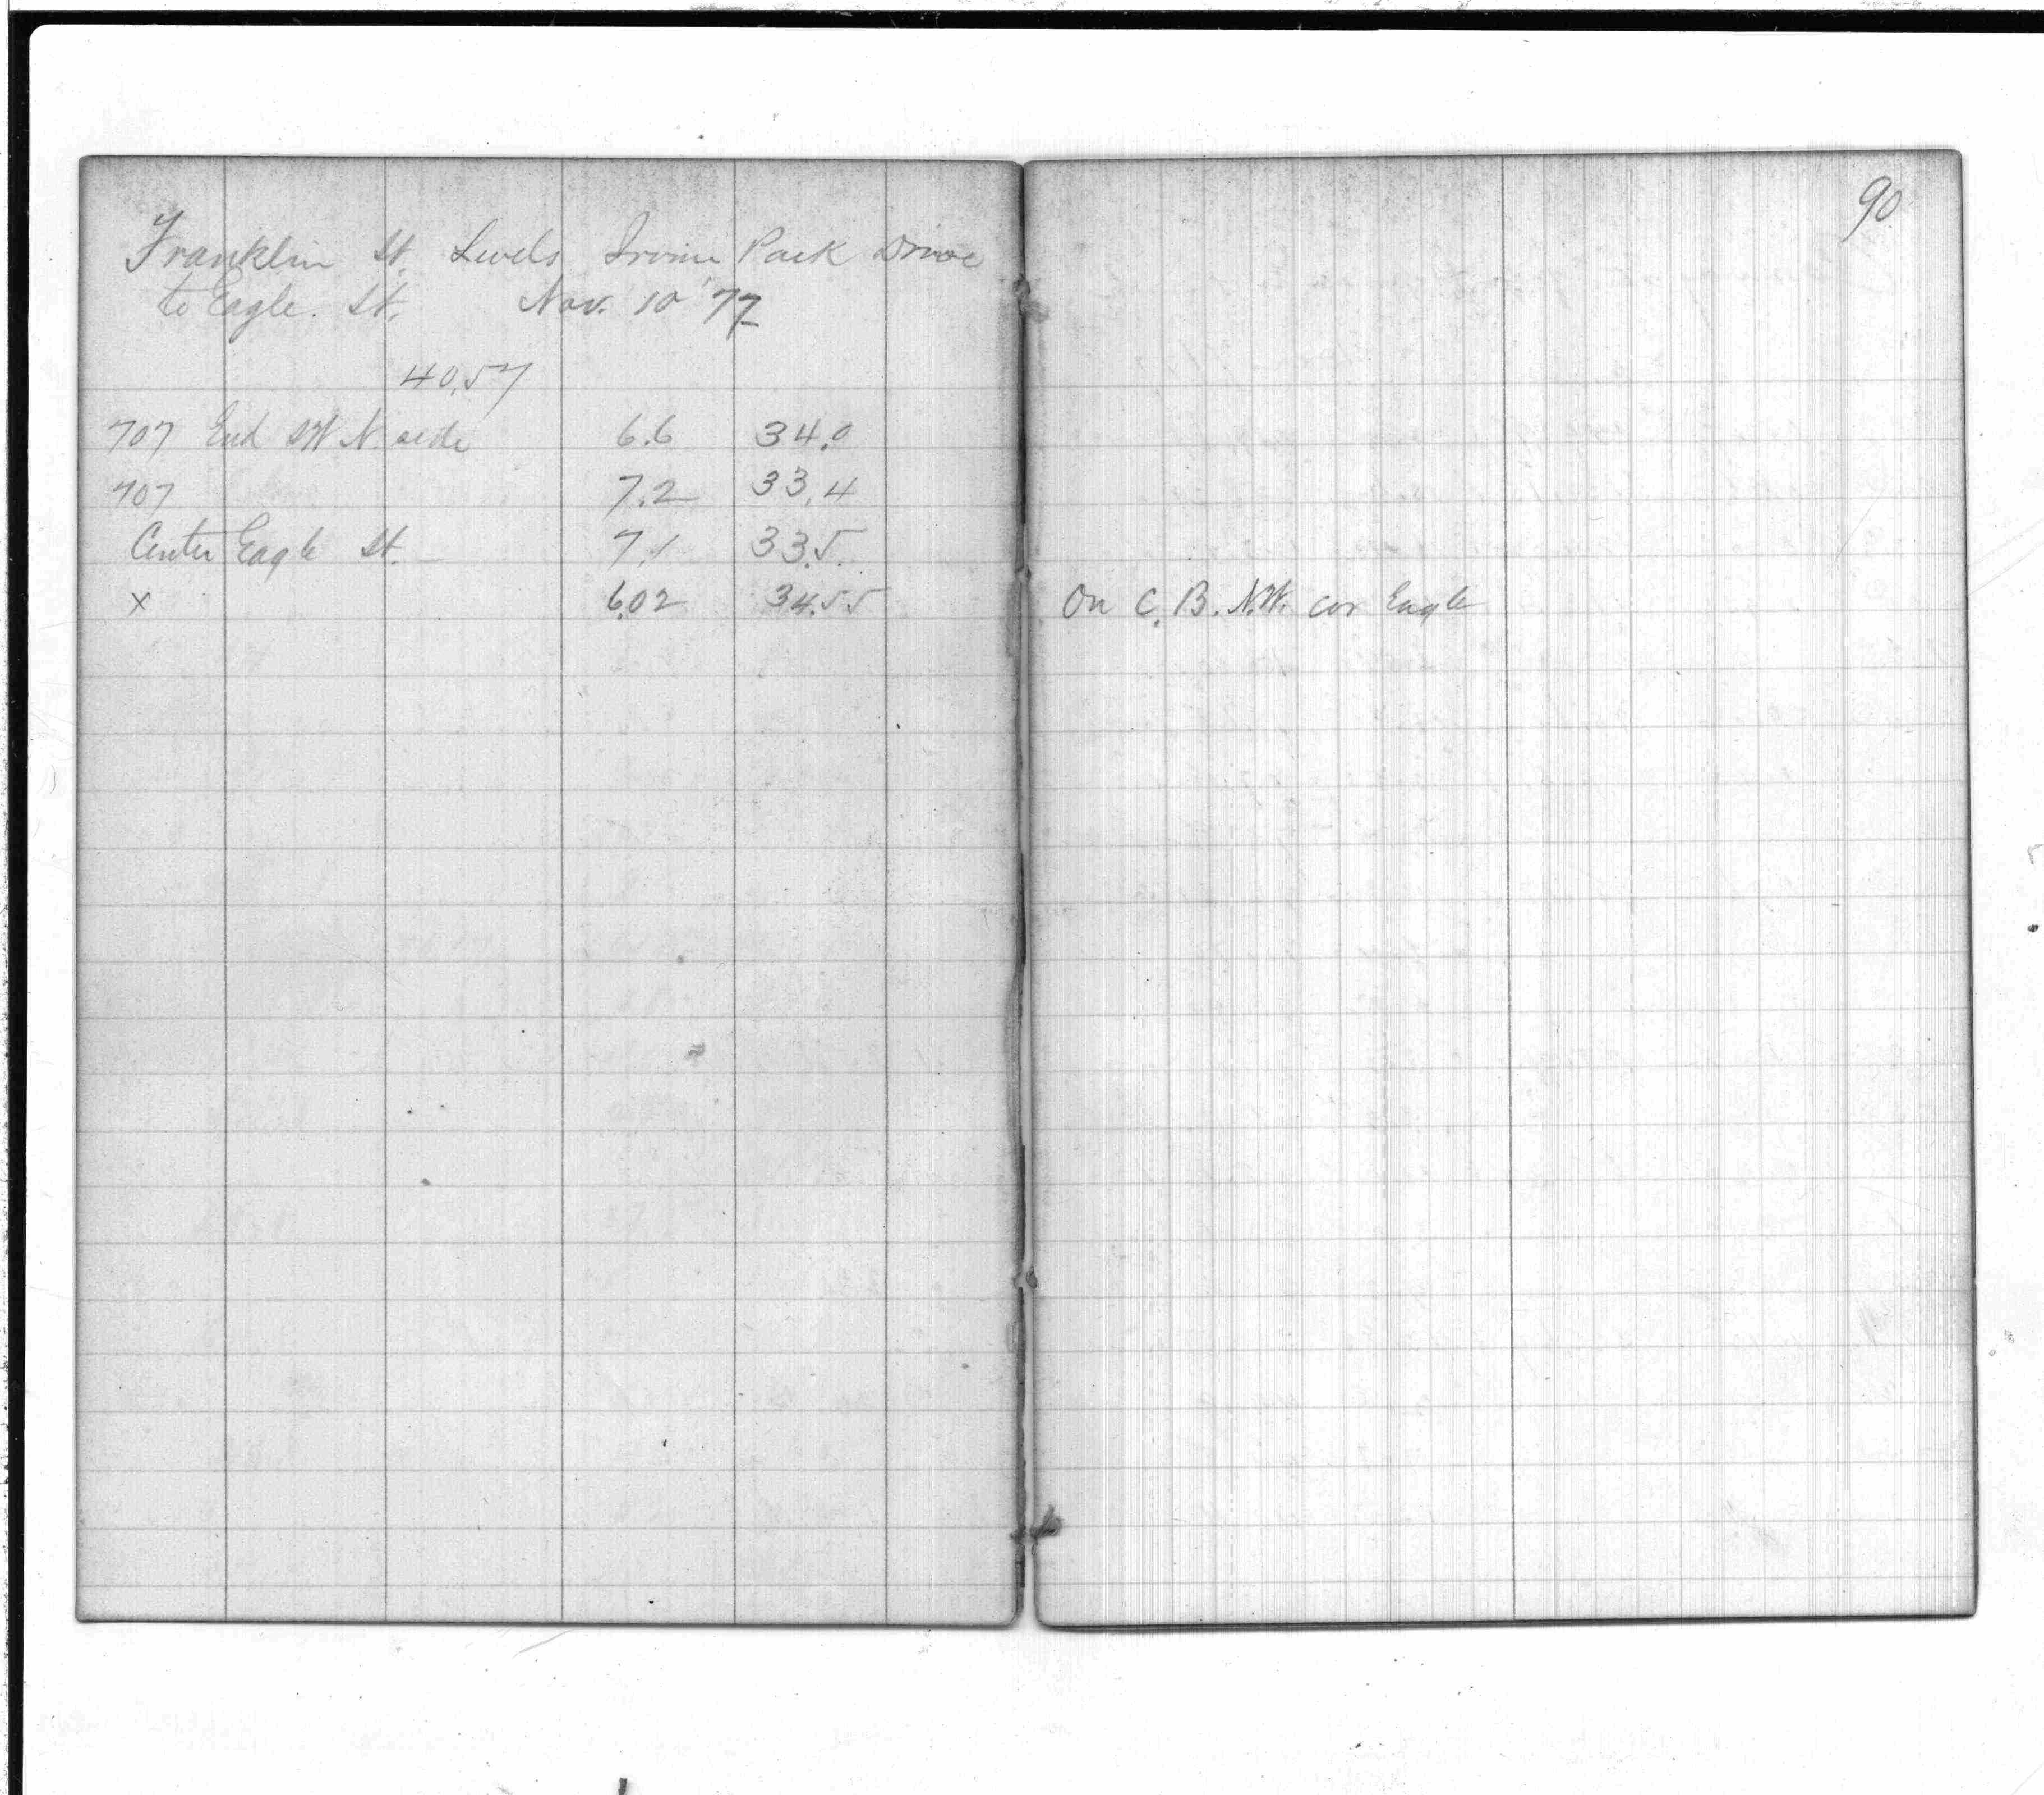 Franklin St. Levels Irvine Park Drive
to Eagle. St. Nov. 10 '77
40.57
707 End SW N. side 6.6 34.0
707 7.2 33.4
Center Eagle St. 7.1 33.5
x 6.02 34.55
90
On C.B. N.W. cor Eagle